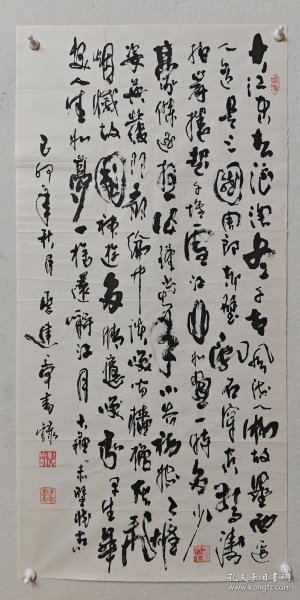 大江东去浪淘尽千古风流人物故垒西边
人道是三國周郎赤壁乱石穿空惊涛
拍岸捲起千堆雪江山如画一时多少
豪傑遥想公瑾当年小乔初嫁了雄
姿英发羽扇纶巾談笑间檣櫓灰飛
烟滅故國神遊多情應笑我早生华
发人生如夢一樽還酹江月 赤壁怀古
己卯年秋月 建章书
孔夫子旧书网